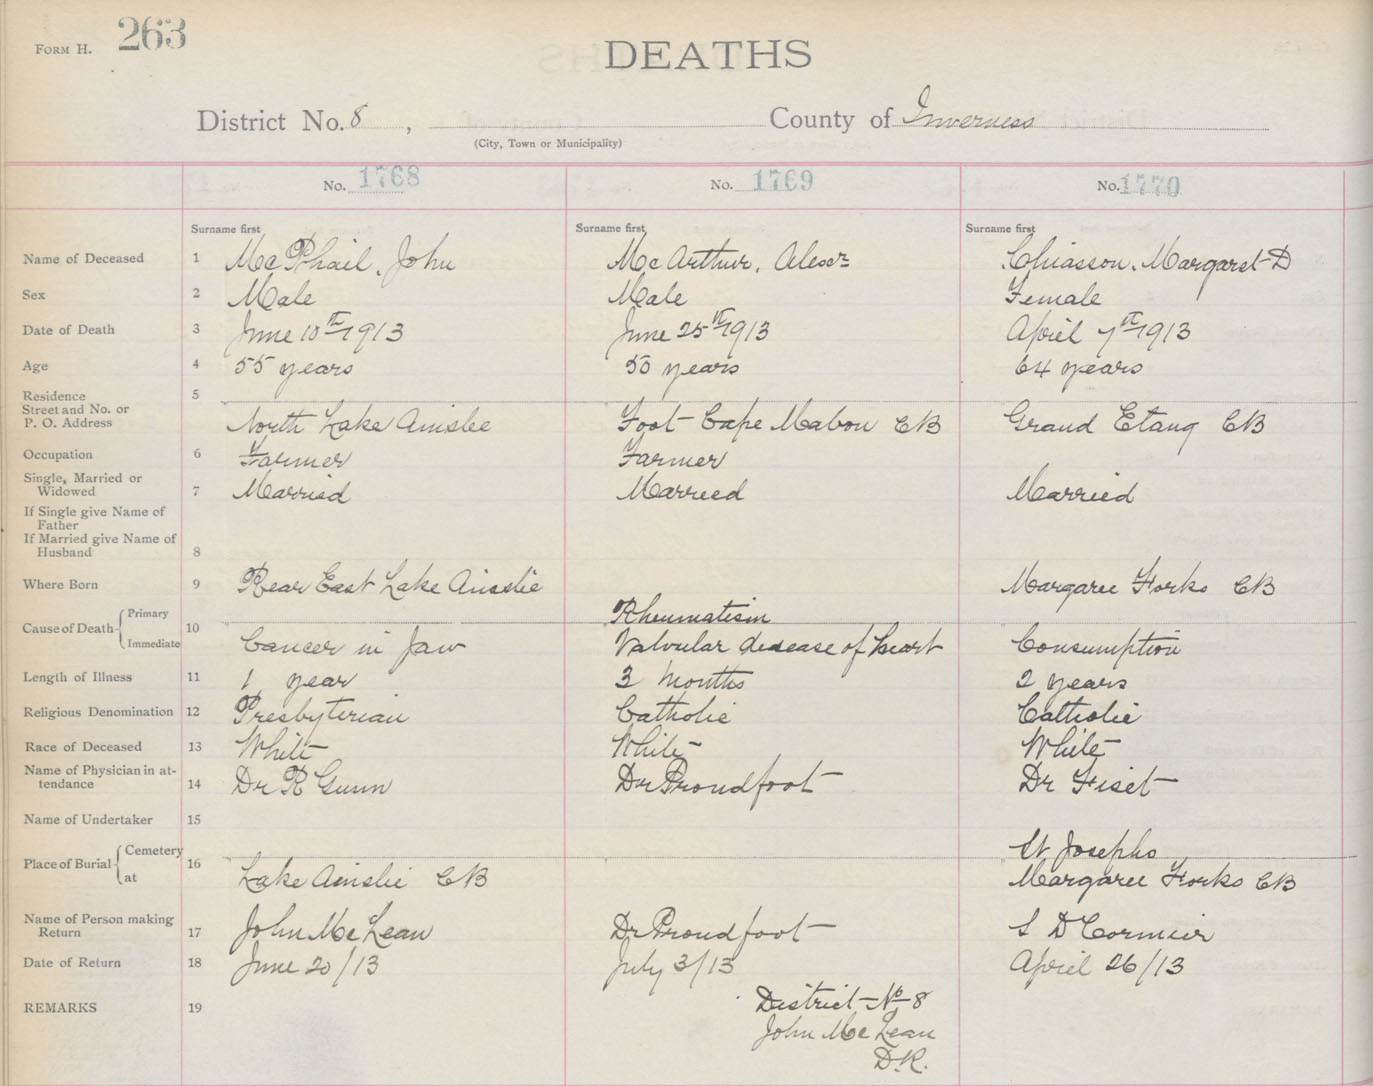 FORM H. 263
DEATHS
District No. 8, County of Inverness
(City, Town or Municipality)
No. 1768 No. 1769 No. 1770
Surname first Surname first Surname first
Name of Deceased 1 McPhail, John McArthur, Alexr Chiasson, Margaret D
Sex 2 Male Male Female
Date of Death 3 June 10th 1913 June 25th 1913 April 7th 1913
Age 4 55 years 50 years 64 years
Residence 5
Street and No. or
P. O. Address North Lake Ainslee Foot Cape Mabou CB Grand Etang CB
Occupation 6 Farmer Farmer
Single, Married or
Widowed 7 Married Married Married
If Single give Name of
Father
If Married give Name of
Husband 8
Where Born 9 Rear East Lake Ainslie Margaree Forks CB
Cause of Death Primary 10 Rheumatism
Immediate Cancer in Jaw Valvular disease of heart Consumption
Length of Illness 11 1 year 3 months 2 years
Religious Denomination 12 Presbyterian Catholic Catholic
Race of Deceased 13 White White White
Name of Physician in at-
tendance 14 Dr R Gunn Dr Proudfoot Dr Fiset
Name of Undertaker 15
Place of Burial Cemetery 16 St Josephs
at Lake Ainslie CB Margaree Forks CB
Name of Person making
Return 17 John McLean Dr Proudfoot S D Cormier
Date of Return 18 June 20/13 July 3/13 April 26/13
REMARKS 19 District No 8
John McLean
D.R.